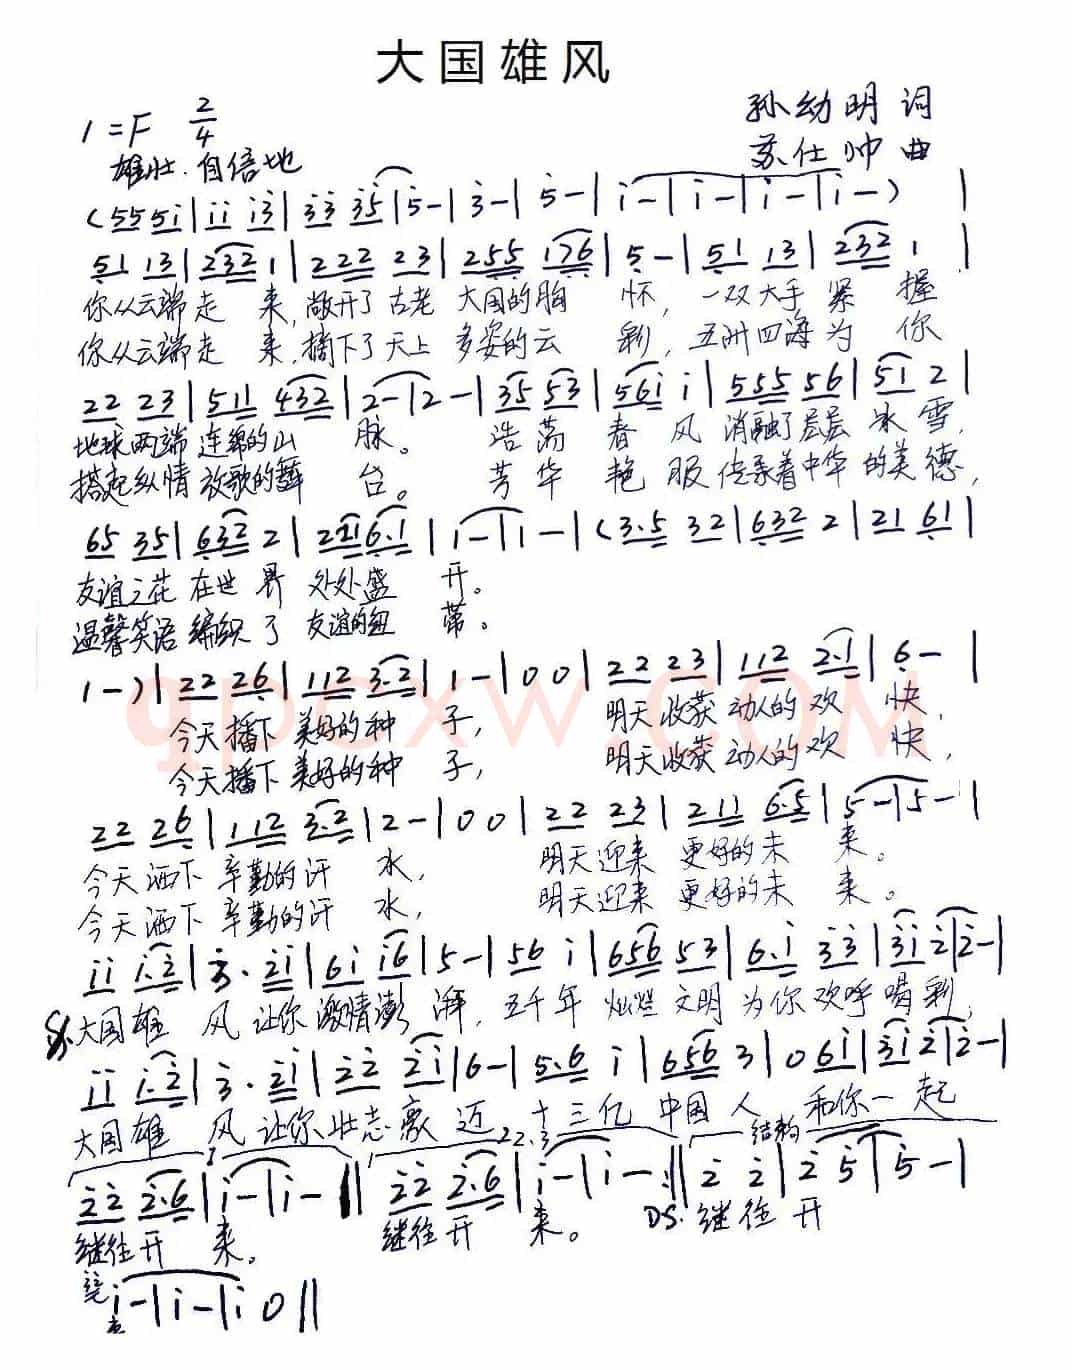 大国雄风
1=F 2/4
孙幼明 词
雄壮.自信地
苏仕帅 曲
(555i|ii i3|33 35|5-|3-|5-|i-|i-|i-|i-)|
51 13|232 1|222 23|255 176|5-|51 13|232 1|
你从云端走 来,敞开了古老 大国的胸 怀,一双大手紧 握
你从云端走 来,摘下了天上 多姿的云 彩,五洲四海为 你
22 23|511 432|2-|2-|35 53|56i i|555 56|51 2|
地球两端 连绵的山 脉。 浩荡 春 风 消融了层层 冰雪,
搭起纵情 放歌的舞 台。 芳华 艳 服 传承着中华 的美德,
65 35|632 2|221 6.1|1-|1-|(3.5 32|632 2|21 61|
友谊之花 在世 界 处处盛 开。
温馨笑语 编织 了 友谊的纽 带。
1-)|22 26|112 3.2|1-|00|22 23|112 2.1|6-|
今天播下 美好的种 子, 明天收获 动人的欢 快,
今天播下 美好的种 子, 明天收获 动人的欢 快,
22 26|112 3.2|2-|00|22 23|211 6.5|5-|5-|
今天洒下 辛勤的汗 水, 明天迎来 更好的未 来。
今天洒下 辛勤的汗 水, 明天迎来 更好的未 来。
ii i.2|3. 2i|6i i6|5-|56 i|656 53|6.i 33|3i 2|2-|
大国雄 风 让你 激情澎 湃,五千年 灿烂 文明 为你 欢呼 喝彩,
ii i.2|3. 2i|22 2i|6-|5.6 i|656 3|0 6i|3i 2|2-|
大国雄 风 让你 壮志豪 迈 十三亿 中国 人 和你一 起
1 2.3 结构
22 2.6|i-|i-‖22 2.6|i-|i-:‖2 2|2 5|5-|
继往开 来。 继往开 来。 D.S. 继往 开
i-|i-|i 0‖
来